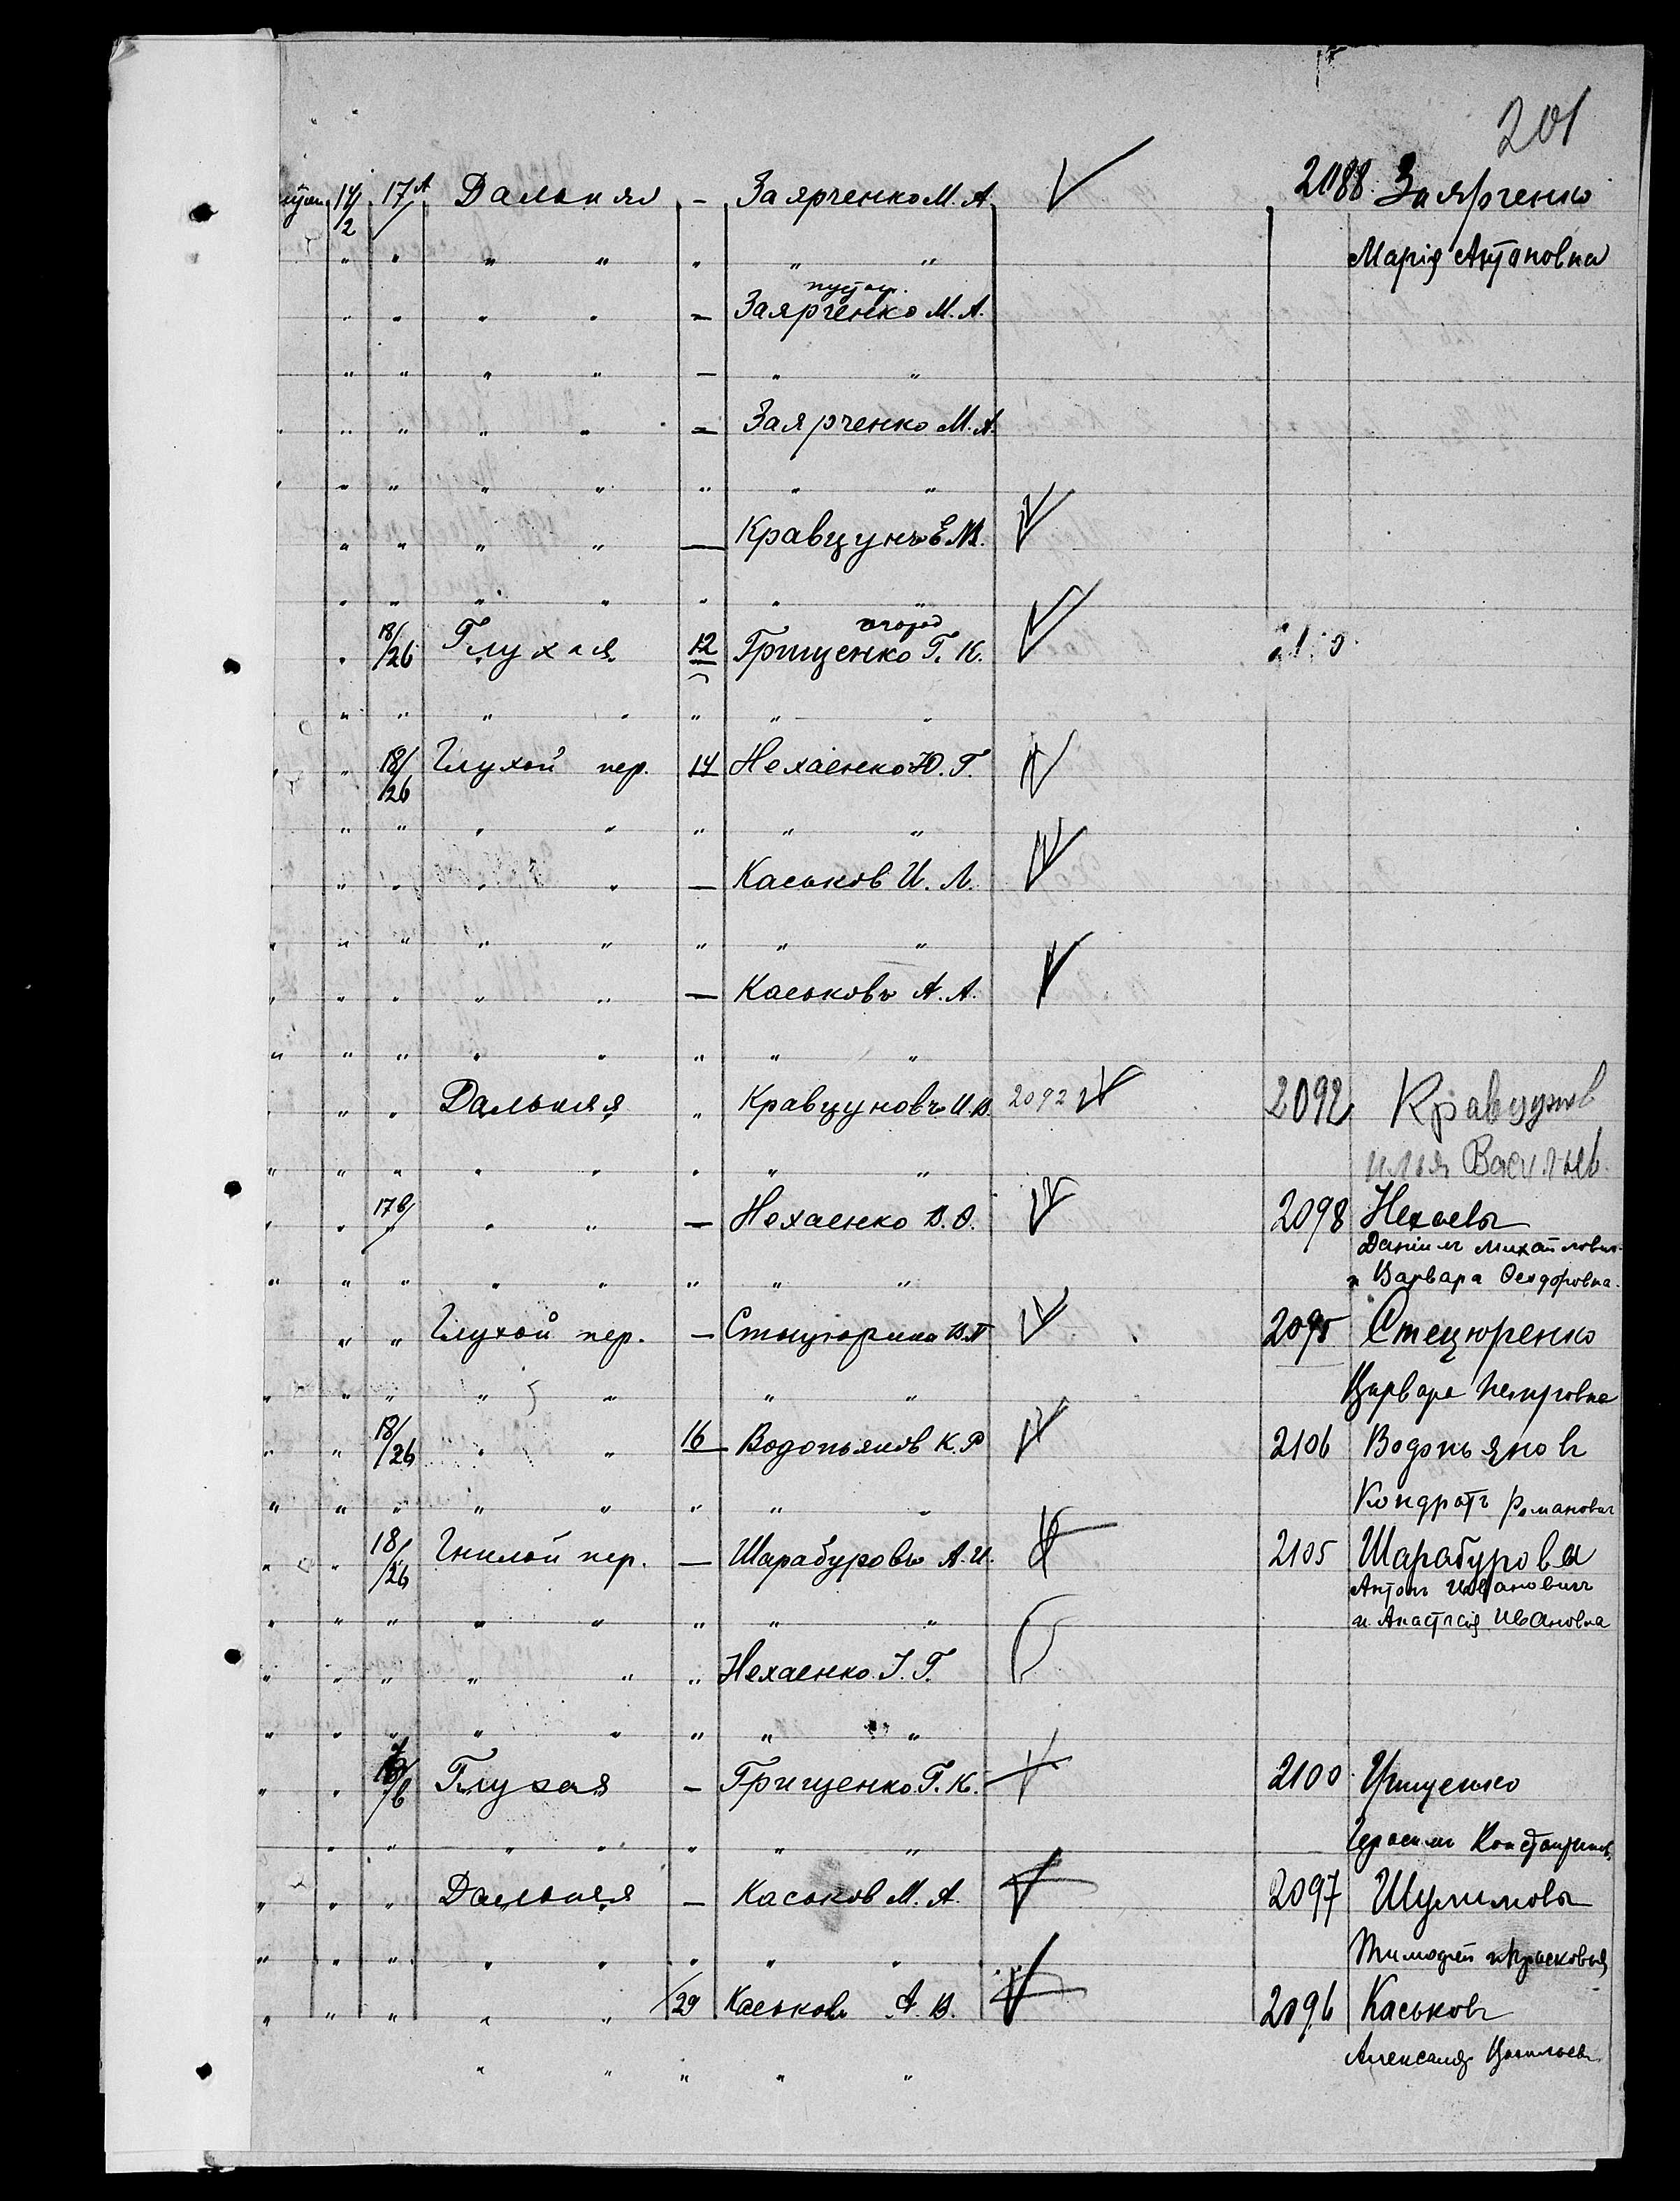 201
14/2 17А Дальняя — Заярченко М. А. 2088 Заярченко
" " " " " " " Марія Антоновна
пустош.
" " " " — Заярченко М. А.
" " " " — " "
" " " " — Заярченко М. А.
" " " " " " "
" " " " — Кравцунъ Е. М.
" " " " " " "
огород
" 18/26 Глухая 12 Грищенко Г. К.
" " " " " " "
" 18/26 Глухой пер. 14 Нехаенко Ю. Г.
" " " " " " "
" " " " — Каськов И. Л.
" " " " " " "
" " " " — Каськовъ А. А.
" " " " " " "
" " Дальняя " Кравцуновъ И. В. 2092 2092 Кравцунов
" " " " " " " илья Васильев.
" 17б " " — Нехаенко В. Ѳ. 2098 Нехаевы
Даніилъ Михайлович
" " " " " " " и Варвара Феодоровна.
" " Глухой пер. — В. П. 2095 Стецюренко
" " " " " " Варвара Петровна
" 18/26 " " 16 Водопьянов К. Р 2106 Водопьяновъ
" " " " " " " Кондратъ Романович
" 18/26 Гнилой пер. — Шарабуровъ А. И. 2105 Шарабуровы
Антонъ Ивановичъ
" " " " " " " и Анастасія Ивановна
" " " " " Нехаенко І. Г.
" " " " " " "
" Глухая — Грищенко Г. К. 2100 Грищенко
" " " " " " " Герасим Константинов.
" " Дальняя — Каськов М. А. 2097 Шулимовы
" " " " " " " Тимофей и Прасковья
" " " " /29 Каськовъ А. В. 2096 Каськовъ
" " " " " Александр Васильев.